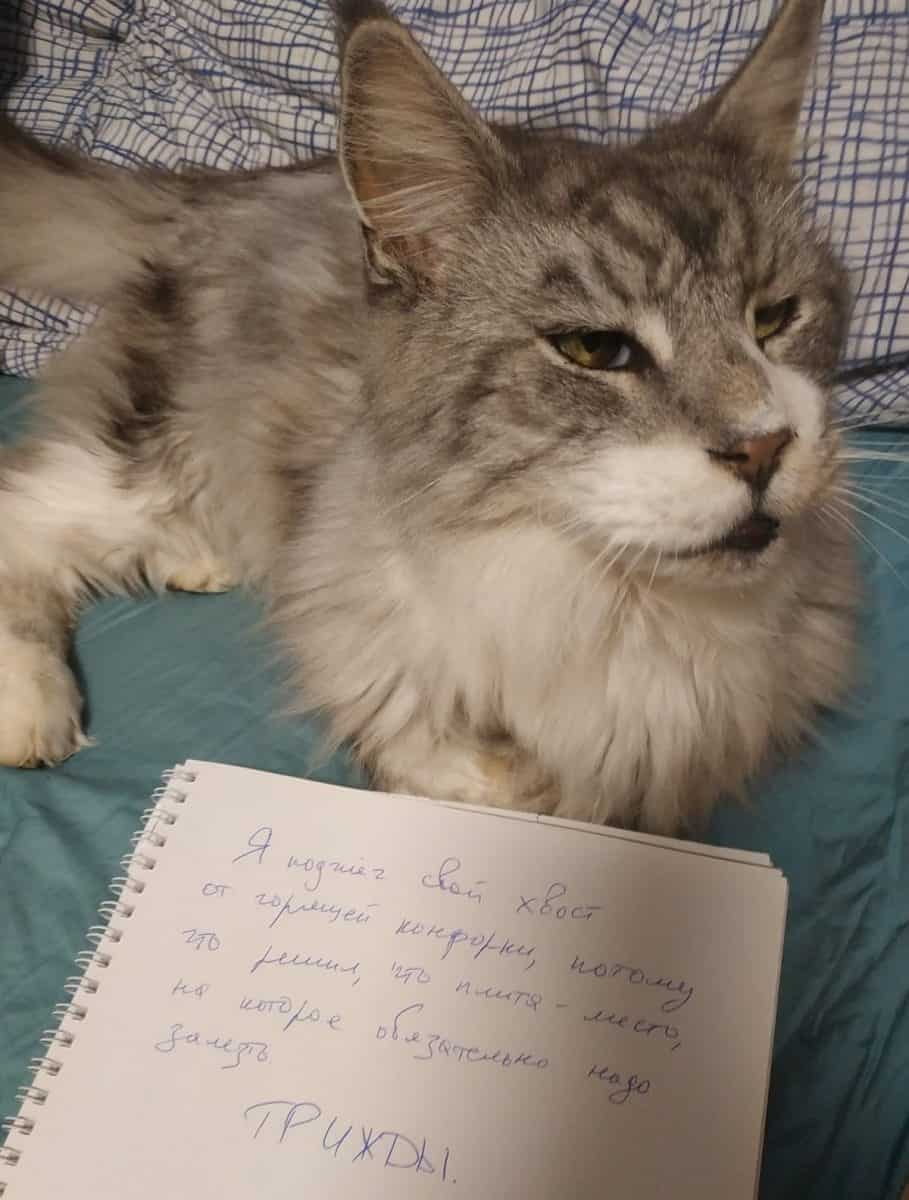 Я поджёг свой хвост
от горящей конфорки, потому
что решил, что плита - место,
на которое обязательно надо
залезть
ТРИЖДЫ.